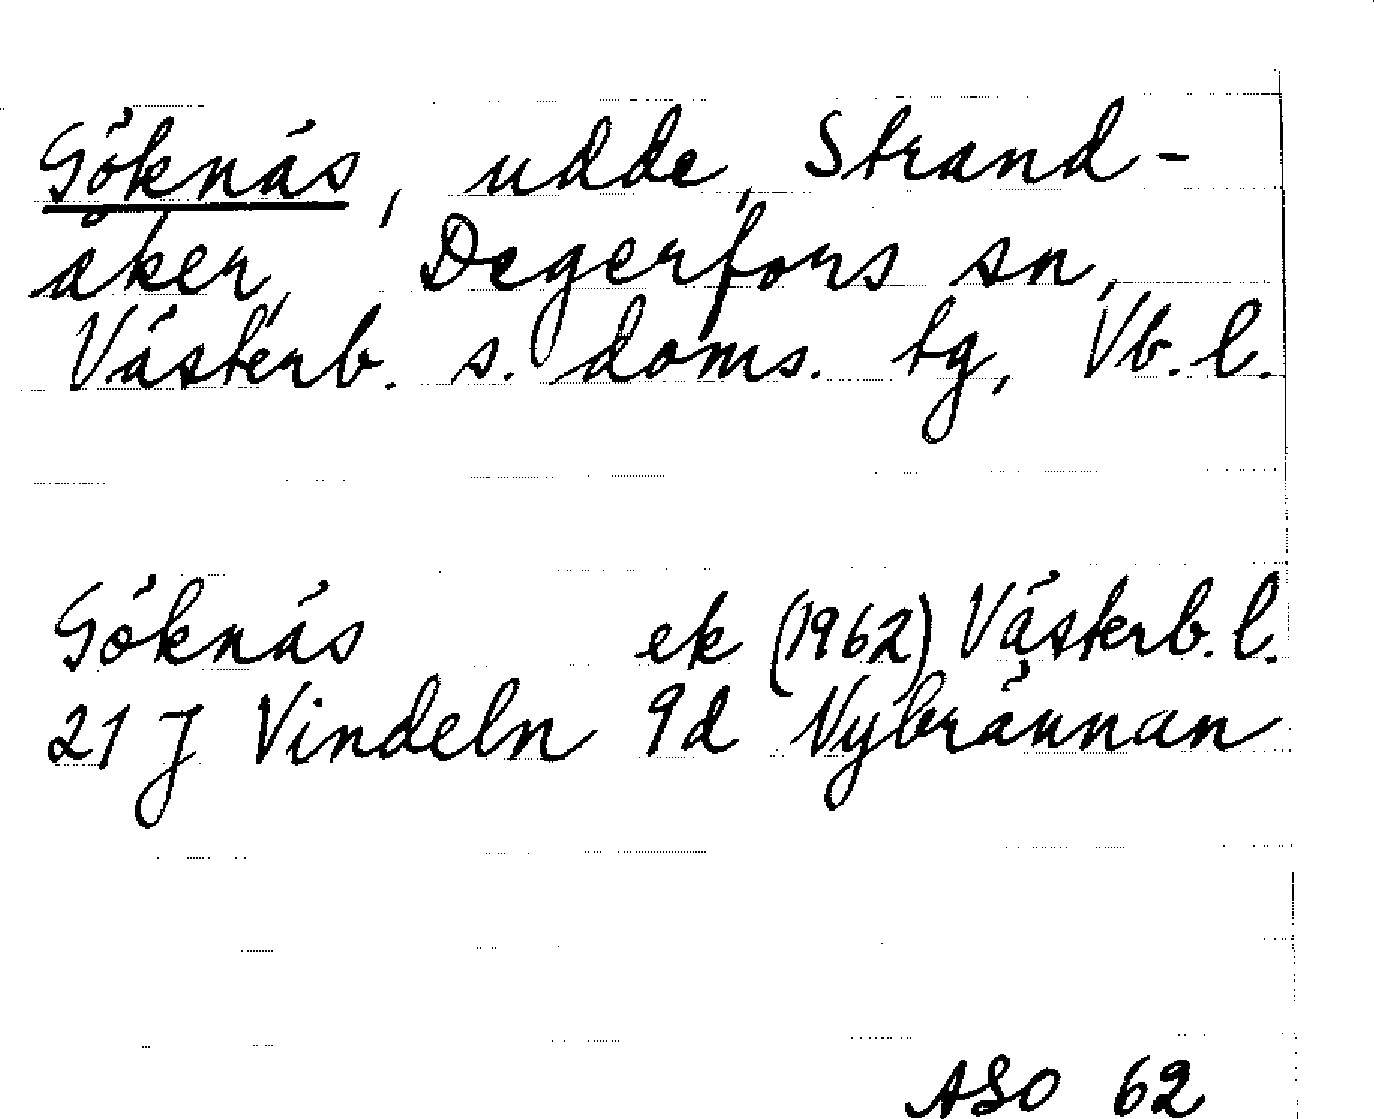 Göknäs, udde, Strand-
åker, Degerfors sn,
Västerb. s. doms. tg, Vb. l.
Göknäs ek (1962) Västerb. l.
21 J Vindeln 9d Nybrännan
ASO 62